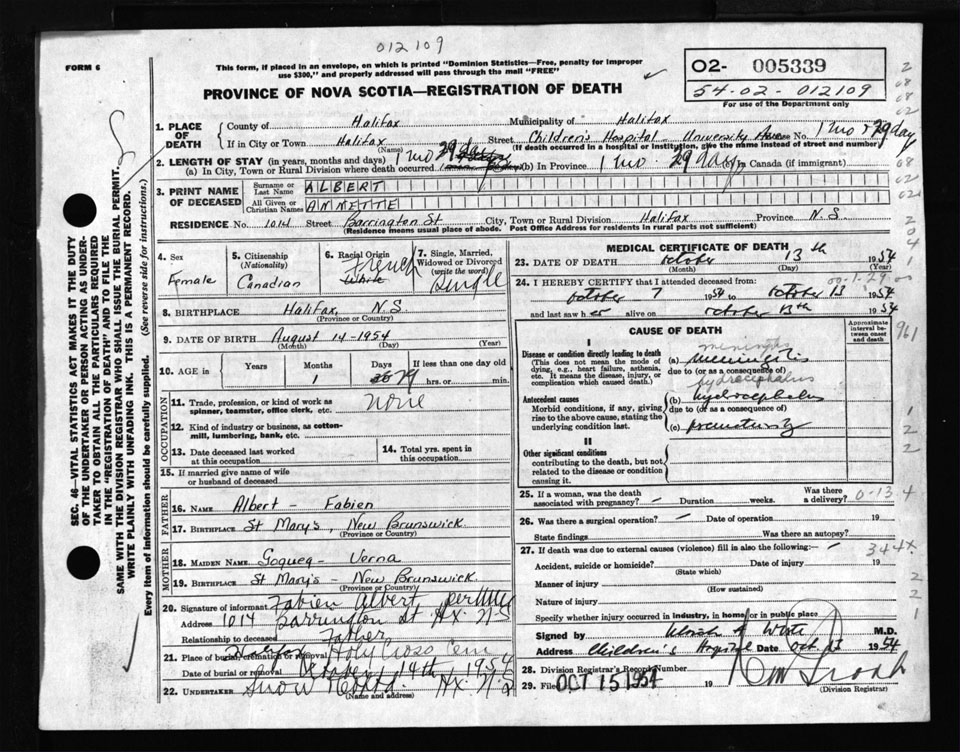 012109
FORM 6
This form, if placed in an envelope, on which is printed "Dominion Statistics—Free, penalty for improper
use $300," and properly addressed will pass through the mail "FREE"
02- 005339
54-02-012109
For use of the Department only
PROVINCE OF NOVA SCOTIA—REGISTRATION OF DEATH
1. PLACE OF DEATH
County of Halifax Municipality of Halifax
If in City or Town Halifax (Name) Street Children's Hospital - University Ave No. 1 mo 29 day
(If death occurred in a hospital or institution, give the name instead of street and number)
2. LENGTH OF STAY (in years, months and days)
(a) In City, Town or Rural Division where death occurred 1 mo 29 day (b) In Province 1 mo. 29 days (c) In Canada (if immigrant)
3. PRINT NAME OF DECEASED
Surname or Last Name ALBERT
All Given or Christian Names ANNETTE
RESIDENCE No. 1014 Street Barrington St City, Town or Rural Division Halifax Province N.S.
(Residence means usual place of abode. Post Office Address for residents in rural parts not sufficient)
4. Sex Female
5. Citizenship (Nationality) Canadian
6. Racial Origin French White
7. Single, Married, Widowed or Divorced (write the word) Single
8. BIRTHPLACE Halifax, N.S.
(Province or Country)
9. DATE OF BIRTH August 14-1954
(Month) (Day) (Year)
10. AGE in Years Months 1 Days 29 If less than one day old hrs. or min.
OCCUPATION
11. Trade, profession, or kind of work as spinner, teamster, office clerk, etc. none
12. Kind of industry or business, as cotton-mill, lumbering, bank, etc.
13. Date deceased last worked at this occupation
14. Total yrs. spent in this occupation
15. If married give name of wife or husband of deceased
FATHER
16. NAME Albert - Fabien
17. BIRTHPLACE St Mary's, New Brunswick
(Province or Country)
MOTHER
18. MAIDEN NAME Goqueq - Verna
19. BIRTHPLACE St Mary's - New Brunswick
(Province or Country)
20. Signature of informant Fabien Albert per
Address 1014 Barrington St. Hx. N S
Relationship to deceased Father
21. Place of burial, cremation or removal Halifax Holy Cross Cem
Date of burial or removal October 14th, 1954
22. UNDERTAKER Snow Hx. N.S
(Name and address)
MEDICAL CERTIFICATE OF DEATH
23. DATE OF DEATH October 13th 1954
(Month) (Day) (Year)
24. I HEREBY CERTIFY that I attended deceased from:
October 7 1954 to October 13 1954
and last saw her alive on October 13th 1954
CAUSE OF DEATH
Approximate interval between onset and death
I
Disease or condition directly leading to death
(This does not mean the mode of dying, e.g., heart failure, asthenia, etc. It means the disease, injury, or complication which caused death.)
meningitis
(a) meningitis
due to (or as a consequence of)
Antecedent causes
Morbid conditions, if any, giving rise to the above cause, stating the underlying condition last.
hydrocephalus
(b) hydrocephalus
due to (or as a consequence of)
(c) prematurity
II
Other significant conditions
contributing to the death, but not related to the disease or condition causing it.
25. If a woman, was the death associated with pregnancy? — Duration weeks. Was there a delivery? 0-13.4
26. Was there a surgical operation? — Date of operation 19
State findings Was there an autopsy?
27. If death was due to external causes (violence) fill in also the following:— 344x
Accident, suicide or homicide? (State which) Date of injury 19
Manner of injury (How sustained)
Nature of injury
Specify whether injury occurred in industry, in home or in public place
Signed by White M.D.
Address Children's Hospital Date Oct. 13 1954
28. Division Registrar's Record Number
29. Filed OCT 15 1954 19
(Division Registrar)
SEC. 46—VITAL STATISTICS ACT MAKES IT THE DUTY
OF THE UNDERTAKER OR PERSON ACTING AS UNDER-
TAKER TO OBTAIN ALL THE PARTICULARS REQUIRED
IN THE "REGISTRATION OF DEATH" AND TO FILE THE
SAME WITH THE DIVISION REGISTRAR WHO SHALL ISSUE THE BURIAL PERMIT.
WRITE PLAINLY WITH UNFADING INK. THIS IS A PERMANENT RECORD.
Every item of information should be carefully supplied. (See reverse side for instructions.)